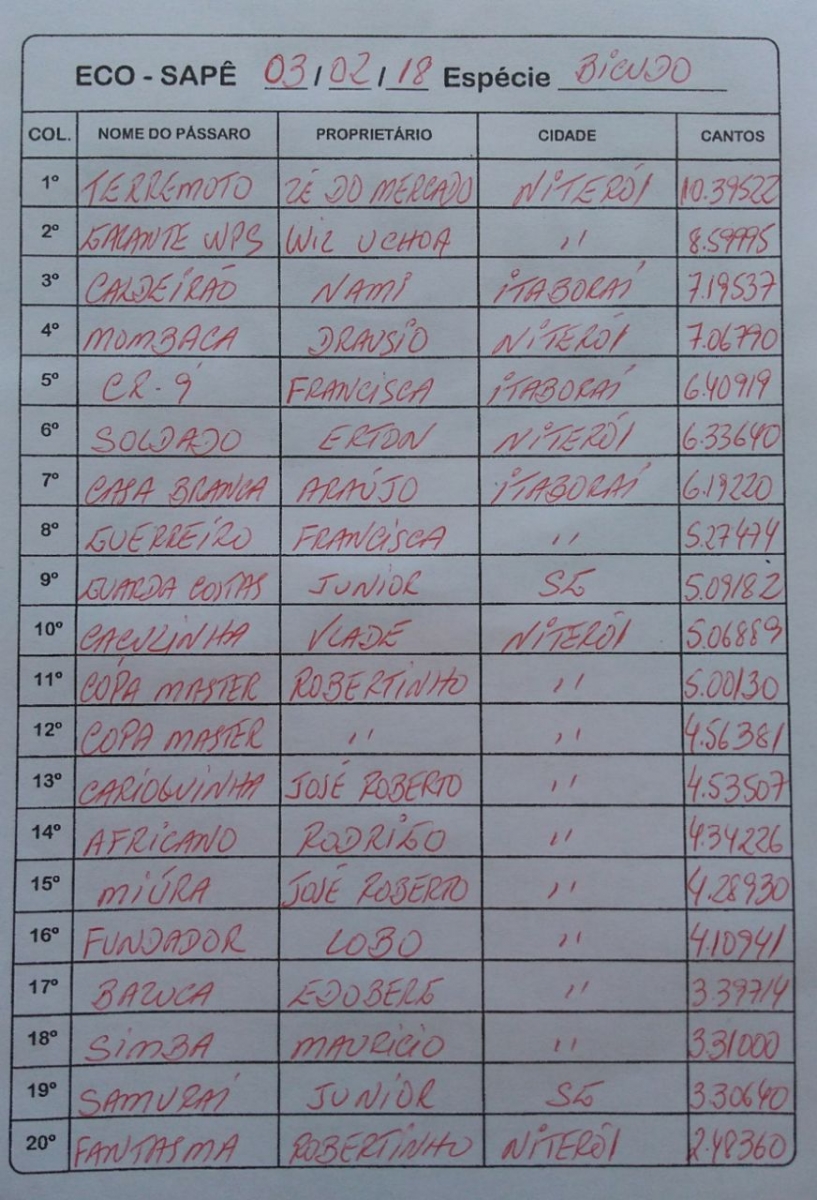 ECO - SAPÊ 03/02/18 Espécie BICUDO
COL. NOME DO PÁSSARO PROPRIETÁRIO CIDADE CANTOS
1º TERREMOTO ZÉ DO MERCADO NITERÓI 10.39522
2º GALANTE WPS WIL UCHOA " 8.59995
3º CALDEIRÃO NAMI ITABORAÍ 7.19537
4º MOMBACA DRAUSIO NITERÓI 7.06790
5º CR-9 FRANCISCA ITABORAÍ 6.40919
6º SOLDADO ERTON NITERÓI 6.33640
7º CASA BRANCA ARAÚJO ITABORAÍ 6.19220
8º GUERREIRO FRANCISCA " 5.27474
9º GUARDA COSTAS JUNIOR SG 5.09182
10º CAÇULINHA VLADE NITERÓI 5.06889
11º COPA MASTER ROBERTINHO " 5.00130
12º COPA MASTER " " 4.56381
13º CARIOQUINHA JOSÉ ROBERTO " 4.53507
14º AFRICANO RODRIGO " 4.34226
15º MIÚRA JOSÉ ROBERTO " 4.28930
16º FUNDADOR LOBO " 4.10941
17º BAZUCA EDOBERG " 3.39714
18º SIMBA MAURICIO " 3.31000
19º SAMURAÍ JUNIOR SG 3.30640
20º FANTASMA ROBERTINHO NITERÓI 2.48360